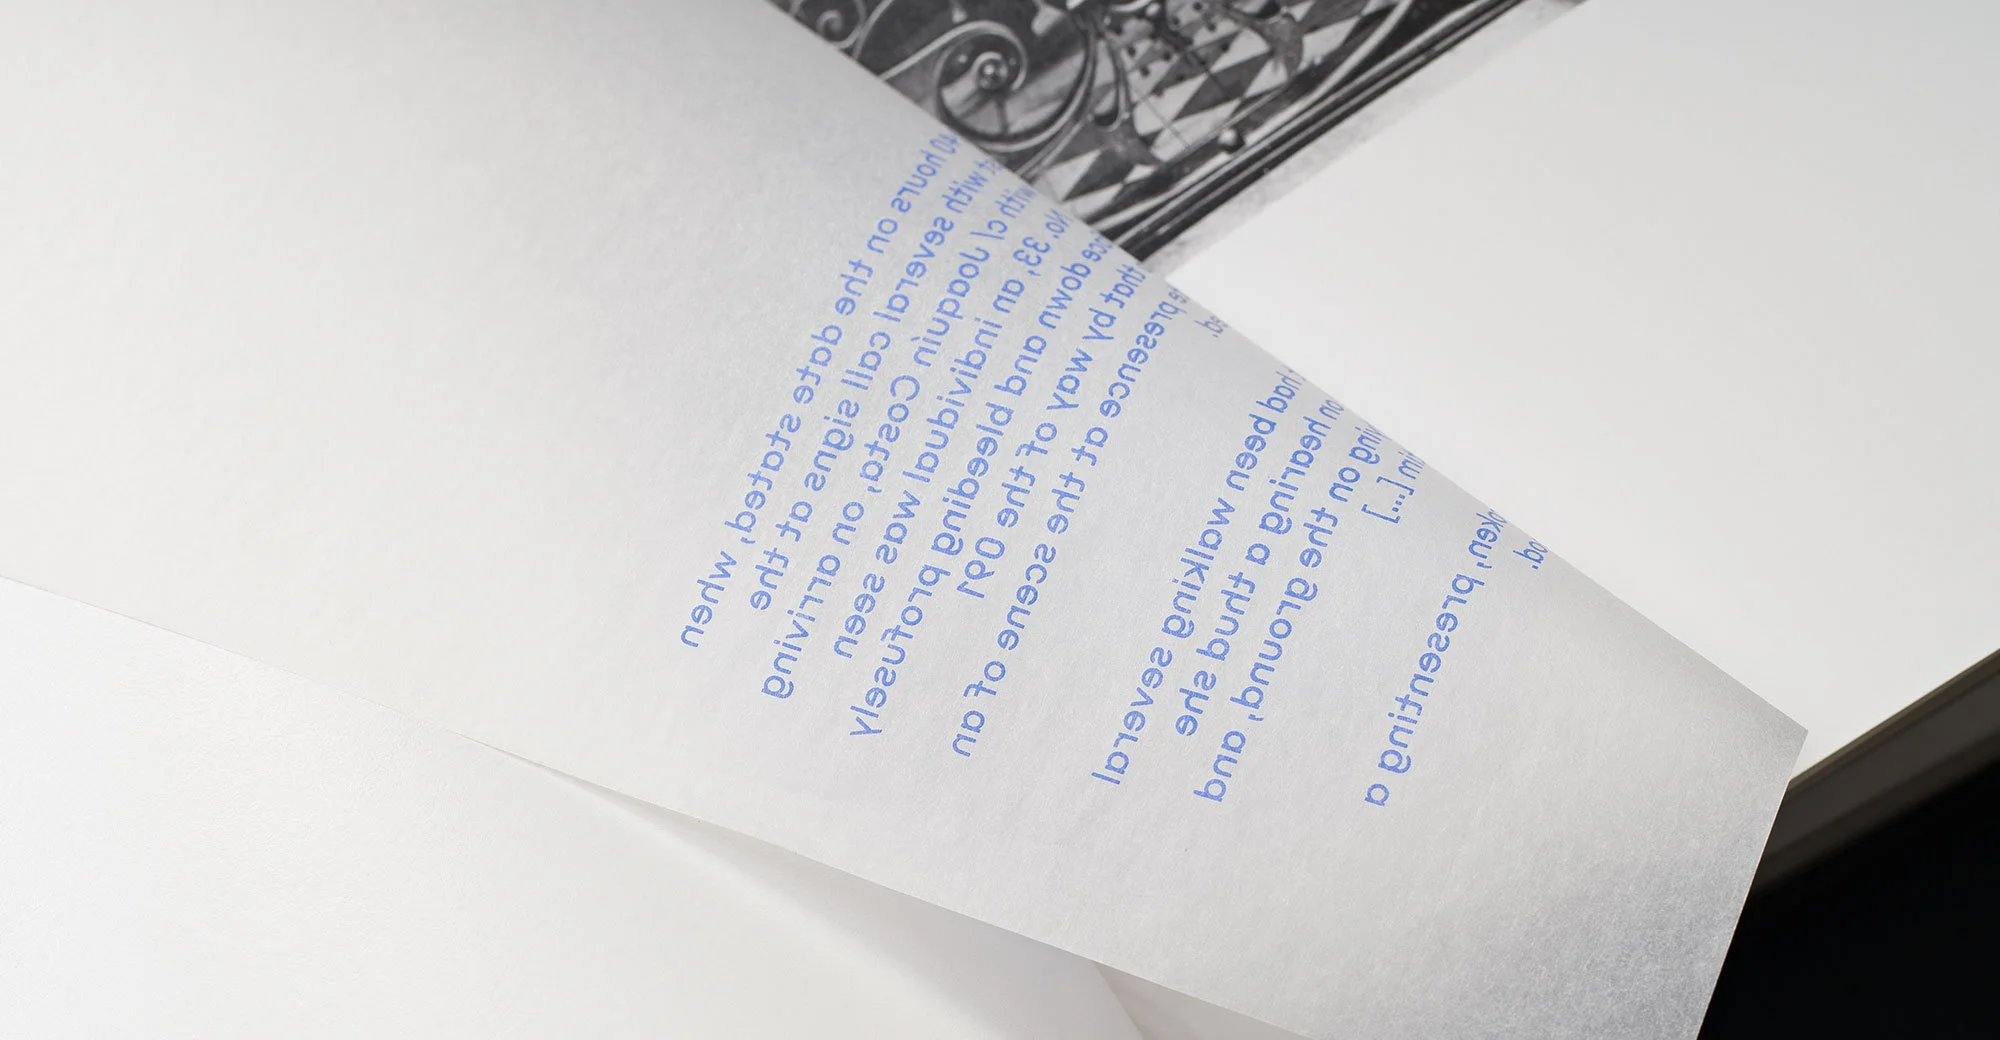 hours on the date stated, when
with several call signs at the
with c/ Joaquín Costa, on arriving
No. 33, an individual was seen
down and bleeding profusely
that by way of the 091
presence at the scene of an
had been walking several
on hearing a thud she
on the ground, and
[...]
presenting a